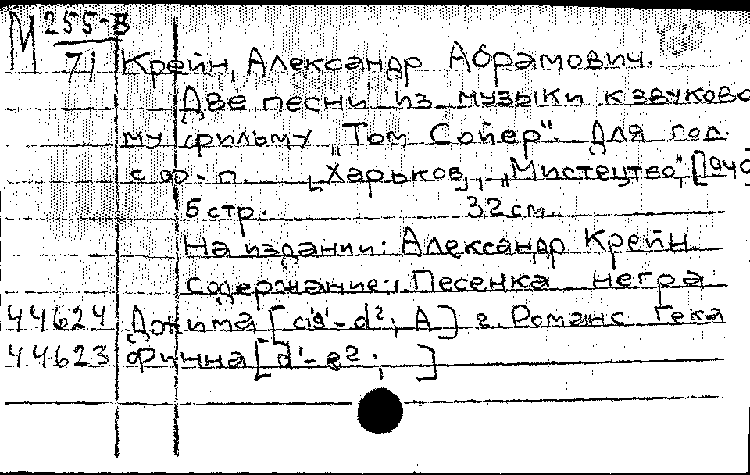 М 255-В
71 Крейн, Александр Абрамович.
Две песни из музыки к звуково
му фильму "Том Сойер". Для гол.
с ф.-п. [Харьков], "Мистецтво", [1940
5 стр. 32 см.
На издании: Александр Крейн.
Содержание: 1. Песенка негра
44624 Джима [d'- d²; A] 2. Романс Гека
44623 Финна [d'- e²; ]